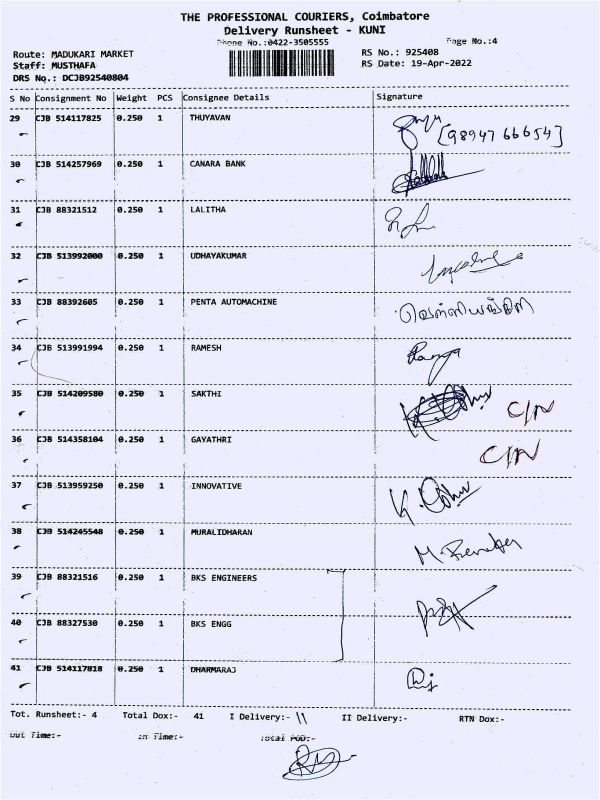 THE PROFESSIONAL COURIERS, Coimbatore
Delivery Runsheet - KUNI
Phone No.:0422-3505555 Page No.:4
Route: MADUKARI MARKET RS No.: 925408
Staff: MUSTHAFA RS Date: 19-Apr-2022
DRS No.: DCJB92540804
S No Consignment No Weight PCS Consignee Details Signature
29 CJB 514117825 0.250 1 THUYAVAN [98947 66654]
30 CJB 514257969 0.250 1 CANARA BANK
31 CJB 88321512 0.250 1 LALITHA
32 CJB 513992000 0.250 1 UDHAYAKUMAR
33 CJB 88392605 0.250 1 PENTA AUTOMACHINE
34 CJB 513991994 0.250 1 RAMESH
35 CJB 514209580 0.250 1 SAKTHI C/N
36 CJB 514358104 0.250 1 GAYATHRI C/N
37 CJB 513959250 0.250 1 INNOVATIVE
38 CJB 514245548 0.250 1 MURALIDHARAN
39 CJB 88321516 0.250 1 BKS ENGINEERS
40 CJB 88327530 0.250 1 BKS ENGG
41 CJB 514117818 0.250 1 DHARMARAJ
Tot. Runsheet:- 4 Total Dox:- 41 I Delivery:- 11 II Delivery:- RTN Dox:-
Out Time:- In Time:- Total POD:-